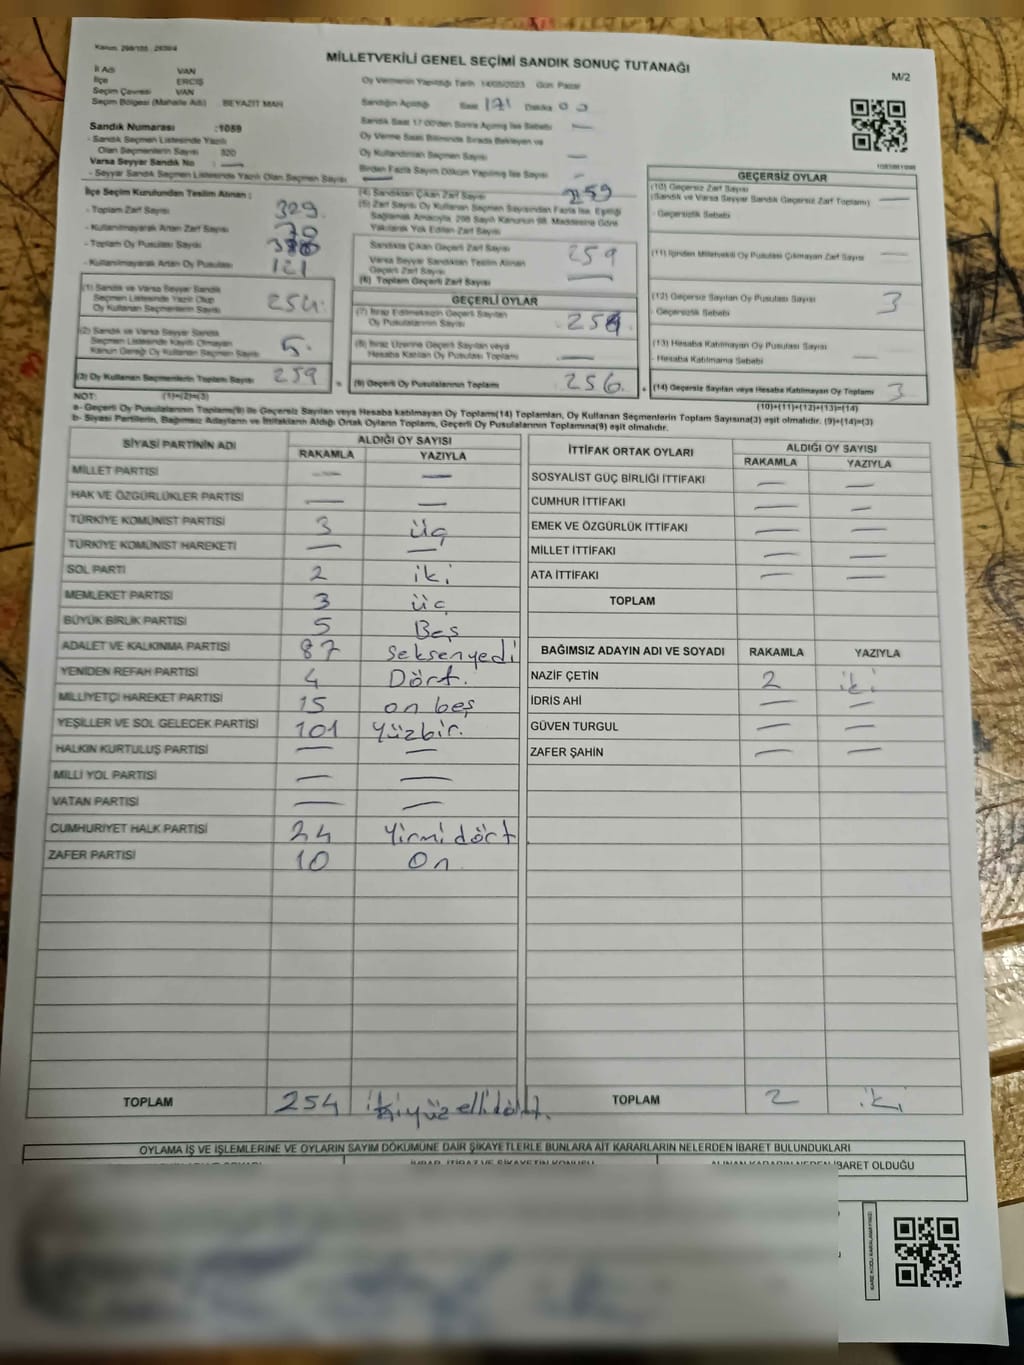 MİLLETVEKİLİ GENEL SEÇİMİ SANDIK SONUÇ TUTANAĞI
M/2
İl Adı VAN
İlçe ERCİŞ
Seçim Çevresi VAN
Seçim Bölgesi (Mahalle Adı) : BEYAZIT MAH
Sandık Numarası :1059
- Sandık Seçmen Listesinde Yazılı
Olan Seçmenlerin Sayısı 320
Varsa Seyyar Sandık No : —
- Seyyar Sandık Seçmen Listesinde Yazılı Olan Seçmen Sayısı
Oy Vermenin Yapıldığı Tarih 14/05/2023 Gün Pazar
Sandığın Açıldığı Saat 17 Dakika 00
Sandık Saat 17:00'den Sonra Açılmış İse Sebebi —
Oy Verme Saati Bitiminde Sırada Bekleyen ve
Oy Kullandırılan Seçmen Sayısı —
Birden Fazla Sayım Döküm Yapılmış İse Sayısı —
İlçe Seçim Kurulundan Teslim Alınan :
- Toplam Zarf Sayısı 329
- Kullanılmayarak Artan Zarf Sayısı 70
- Toplam Oy Pusulası Sayısı
- Kullanılmayarak Artan Oy Pusulası 121
(1) Sandık ve Varsa Seyyar Sandık
Seçmen Listesinde Yazılı Olup
Oy Kullanan Seçmenlerin Sayısı 254
(2) Sandık ve Varsa Seyyar Sandık
Seçmen Listesinde Kayıtlı Olmayan
Kanun Gereği Oy Kullanan Seçmen Sayısı 5
(3) Oy Kullanan Seçmenlerin Toplam Sayısı 259
(1)+(2)=(3)
(4) Sandıktan Çıkan Zarf Sayısı 259
(5) Zarf Sayısı Oy Kullanan Seçmen Sayısından Fazla İse, Eşitliği
Sağlamak Amacıyla, 298 Sayılı Kanunun 98. Maddesine Göre
Yakılarak Yok Edilen Zarf Sayısı
Sandıkta Çıkan Geçerli Zarf Sayısı 259
Varsa Seyyar Sandıktan Teslim Alınan
Geçerli Zarf Sayısı —
(6) Toplam Geçerli Zarf Sayısı
GEÇERLİ OYLAR
(7) İtiraz Edilmeksizin Geçerli Sayılan
Oy Pusulalarının Sayısı
(8) İtiraz Üzerine Geçerli Sayılan veya
Hesaba Katılan Oy Pusulası Toplamı —
(9) Geçerli Oy Pusulalarının Toplamı 256
GEÇERSİZ OYLAR
(10) Geçersiz Zarf Sayısı
(Sandık ve Varsa Seyyar Sandık Geçersiz Zarf Toplamı) —
- Geçersizlik Sebebi
(11) İçinden Milletvekili Oy Pusulası Çıkmayan Zarf Sayısı —
(12) Geçersiz Sayılan Oy Pusulası Sayısı 3
- Geçersizlik Sebebi
(13) Hesaba Katılmayan Oy Pusulası Sayısı —
- Hesaba Katılmama Sebebi
(14) Geçersiz Sayılan veya Hesaba Katılmayan Oy Toplamı 3
(10)+(11)+(12)+(13)=(14)
NOT:
a- Geçerli Oy Pusulalarının Toplamı(9) ile Geçersiz Sayılan veya Hesaba katılmayan Oy Toplamı(14) Toplamları, Oy Kullanan Seçmenlerin Toplam Sayısına(3) eşit olmalıdır. (9)+(14)=(3)
b- Siyasi Partilerin, Bağımsız Adayların ve İttifakların Aldığı Ortak Oyların Toplamı, Geçerli Oy Pusulalarının Toplamına(9) eşit olmalıdır.
SİYASİ PARTİNİN ADI ALDIĞI OY SAYISI
RAKAMLA YAZIYLA
MİLLET PARTİSİ — —
HAK VE ÖZGÜRLÜKLER PARTİSİ — —
TÜRKİYE KOMÜNİST PARTİSİ 3 üç
TÜRKİYE KOMÜNİST HAREKETİ — —
SOL PARTİ 2 iki
MEMLEKET PARTİSİ 3 üç
BÜYÜK BİRLİK PARTİSİ 5 Beş
ADALET VE KALKINMA PARTİSİ 87 seksenyedi
YENİDEN REFAH PARTİSİ 4 Dört.
MİLLİYETÇİ HAREKET PARTİSİ 15 on beş
YEŞİLLER VE SOL GELECEK PARTİSİ 101 Yüzbir.
HALKIN KURTULUŞ PARTİSİ — —
MİLLİ YOL PARTİSİ — —
VATAN PARTİSİ — —
CUMHURİYET HALK PARTİSİ 24 Yirmidört
ZAFER PARTİSİ 10 On
TOPLAM 254 ikiyüzellidört.
İTTİFAK ORTAK OYLARI ALDIĞI OY SAYISI
RAKAMLA YAZIYLA
SOSYALİST GÜÇ BİRLİĞİ İTTİFAKI — —
CUMHUR İTTİFAKI — —
EMEK VE ÖZGÜRLÜK İTTİFAKI — —
MİLLET İTTİFAKI — —
ATA İTTİFAKI — —
TOPLAM
BAĞIMSIZ ADAYIN ADI VE SOYADI RAKAMLA YAZIYLA
NAZİF ÇETİN 2 iki
İDRİS AHİ — —
GÜVEN TURGUL — —
ZAFER ŞAHİN — —
TOPLAM 2 iki
OYLAMA İŞ VE İŞLEMLERİNE VE OYLARIN SAYIM DÖKÜMÜNE DAİR ŞİKAYETLERLE BUNLARA AİT KARARLARIN NELERDEN İBARET BULUNDUKLARI
İHBAR, İTİRAZ VE ŞİKAYETİN KONUSU
ALINAN KARARIN NEDEN İBARET OLDUĞU